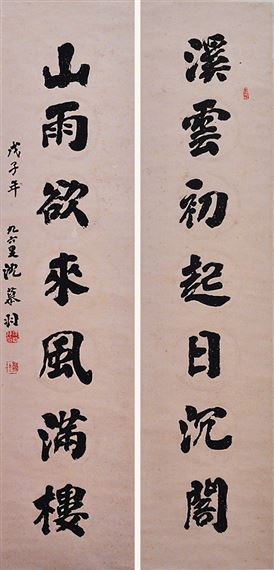 溪雲初起日沉閣
山雨欲來風滿樓
戊子年 九六叟沈慕羽